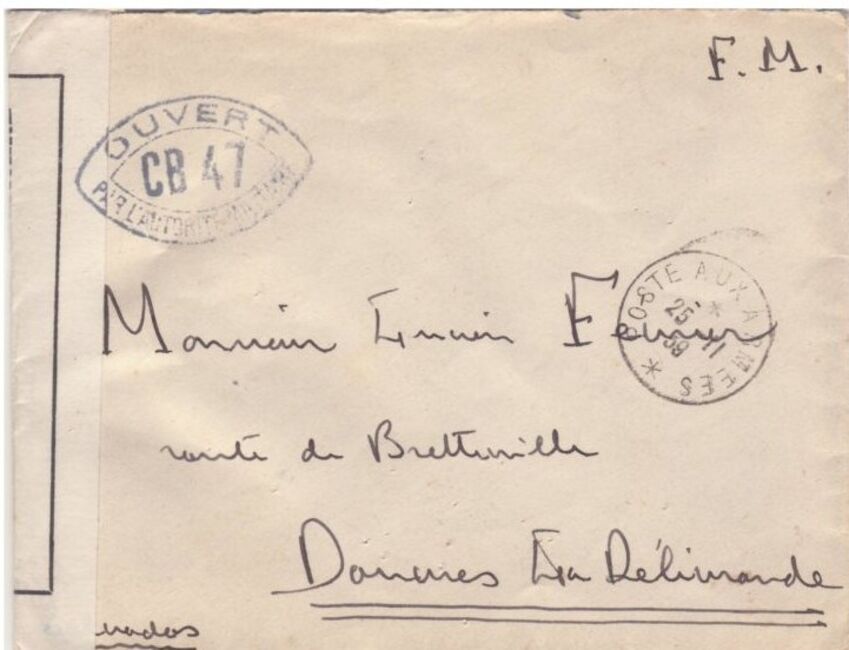 F. M.
OUVERT
CB 47
PAR L'AUTORITE MILITAIRE
POSTE AUX ARMEES
25 - 11
59
Monsieur Lucien
route de Bretteville
Douvres La Délivrande
vados